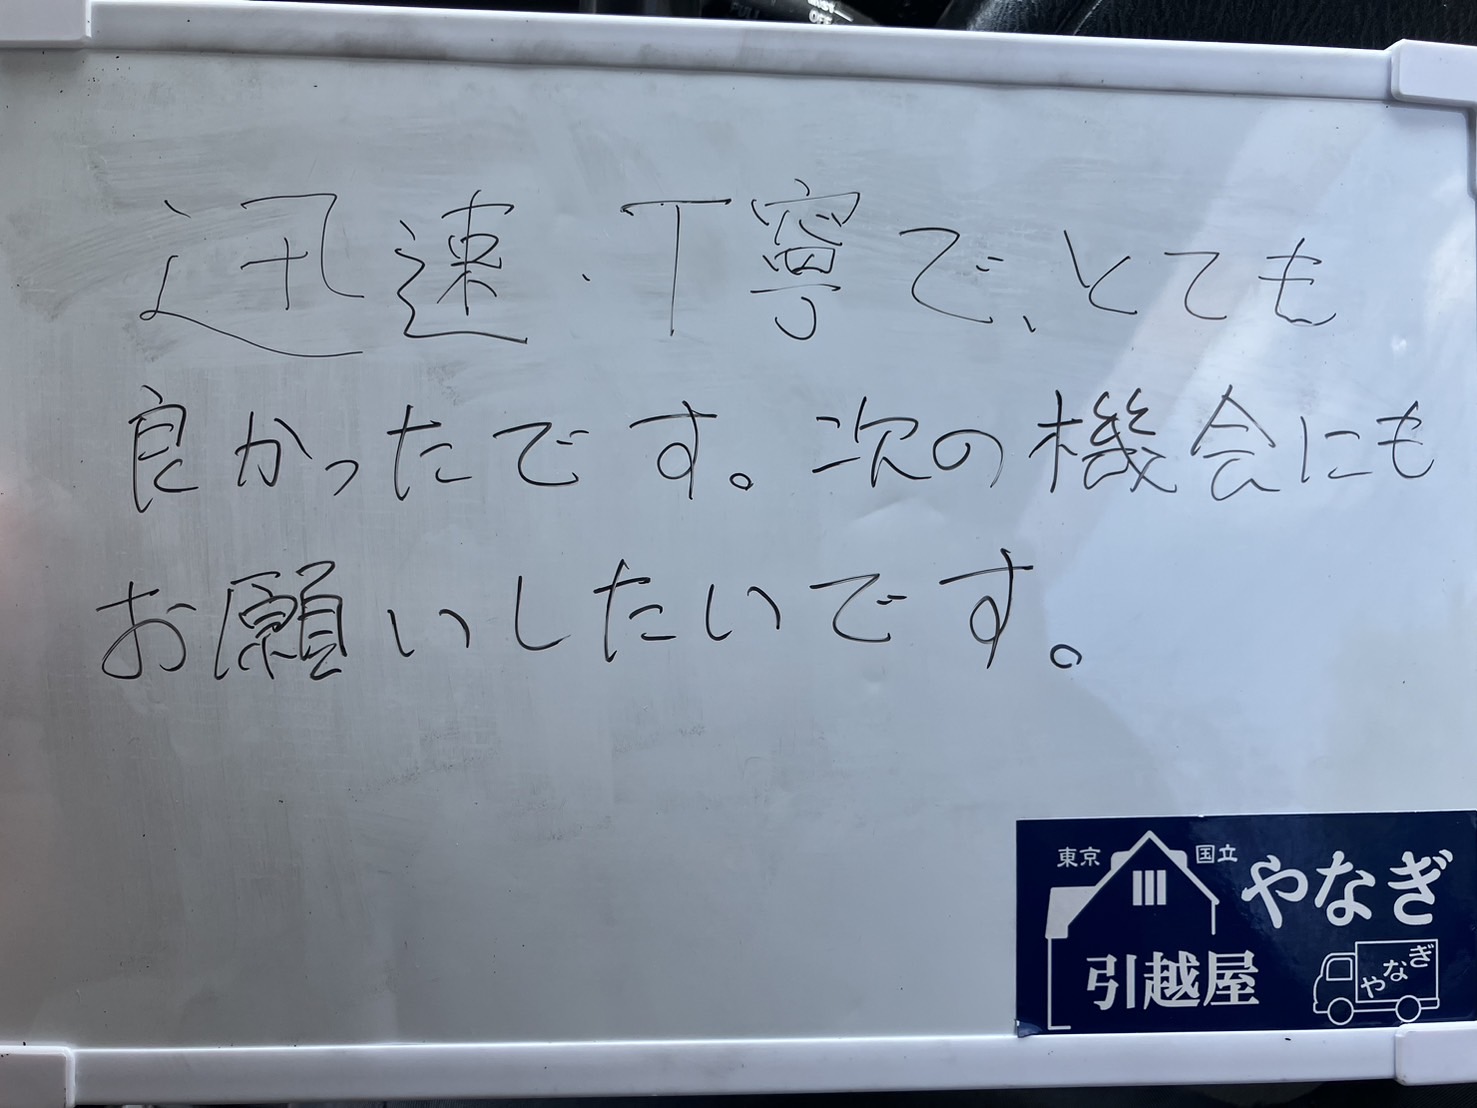 迅速・丁寧で、とても
良かったです。次の機会にも
お願いしたいです。
東京 国立 やなぎ
引越屋
やなぎ